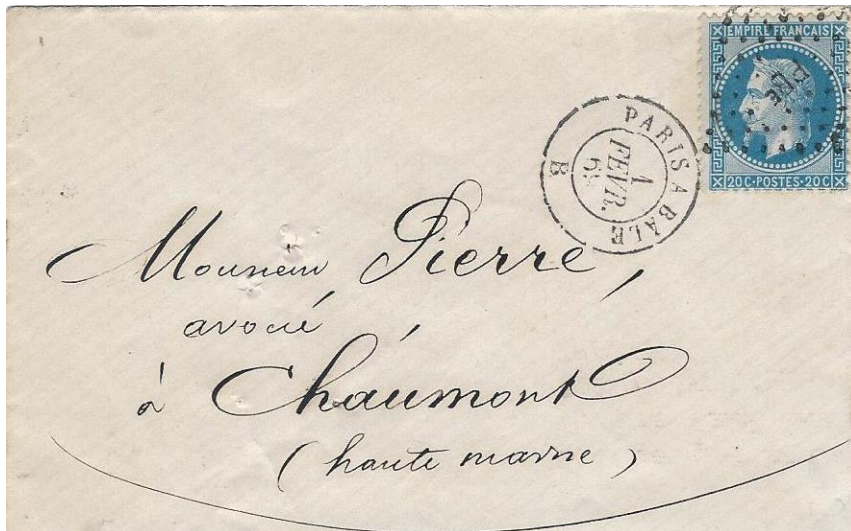 EMPIRE FRANCAIS
20C·POSTES·20C
PARIS A BALE
1
FEVR.
B
Monsieur Pierre,
avoué
à Chaumont
(haute marne)